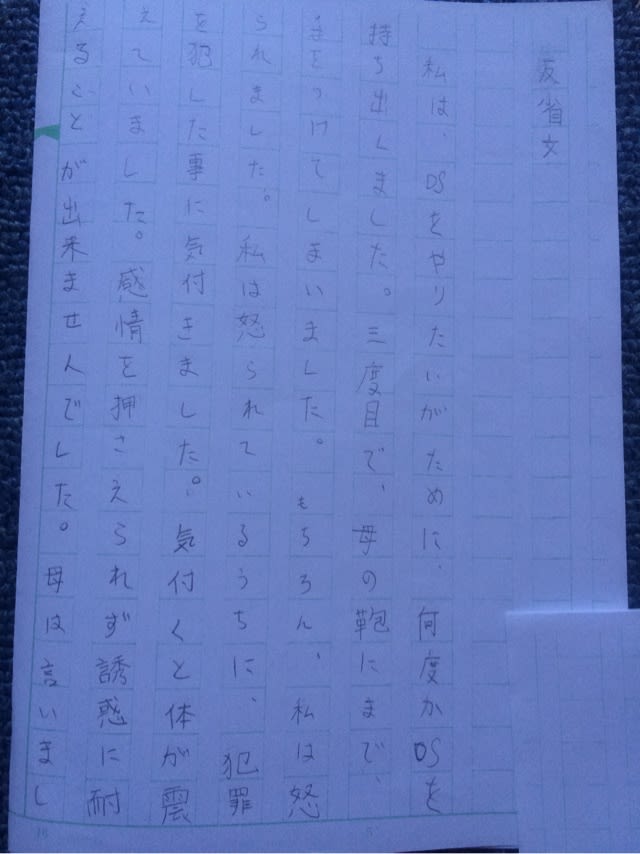 反省文
私は、DSをやりたいがために、何度かDSを
持ち出しました。三度目で、母の鞄にまで、
手をつけてしまいました。もちろん、私は怒
られました。私は怒られているうちに、犯罪
を犯した事に気付きました。気付くと体が震
えていました。感情を押さえられず誘惑に耐
えることが出来ませんでした。母は言いまし